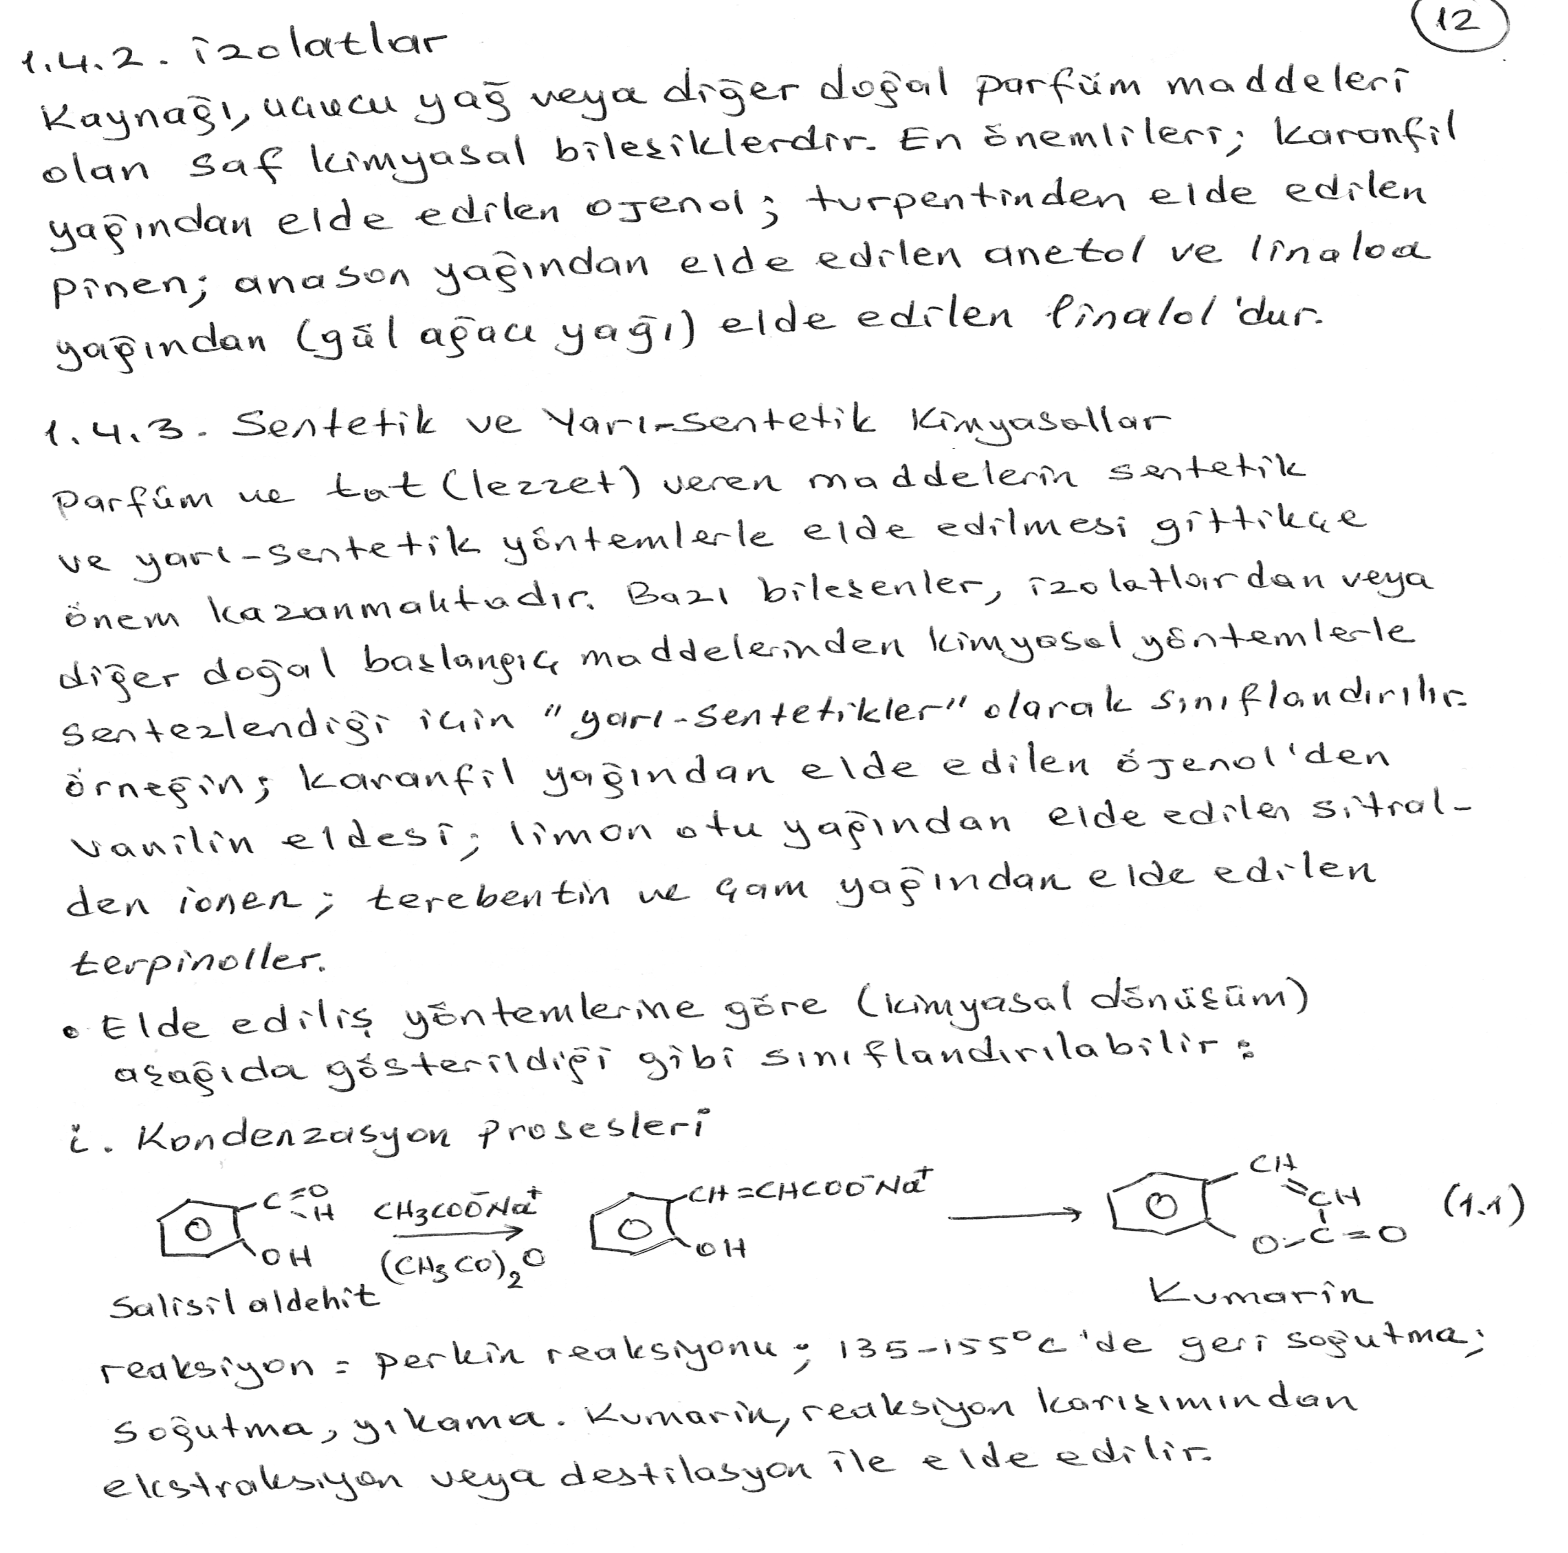 12
1.4.2. izolatlar
Kaynağı, uçucu yağ veya diğer doğal parfüm maddeleri
olan saf kimyasal bileşiklerdir. En önemlileri; karanfil
yağından elde edilen ojenol; turpentinden elde edilen
pinen; anason yağından elde edilen anetol ve linaloa
yağından (gül ağacı yağı) elde edilen linalol'dur.
1.4.3. Sentetik ve Yarı-sentetik Kimyasallar
Parfüm ve tat (lezzet) veren maddelerin sentetik
ve yarı-sentetik yöntemlerle elde edilmesi gittikçe
önem kazanmaktadır. Bazı bileşenler, izolatlardan veya
diğer doğal başlangıç maddelerinden kimyasal yöntemlerle
sentezlendiği için "yarı-sentetikler" olarak sınıflandırılır.
örneğin; karanfil yağından elde edilen öjenol'den
vanilin eldesi; limon otu yağından elde edilen sitral-
den ionen; terebentin ve çam yağından elde edilen
terpinoller.
• Elde ediliş yöntemlerine göre (kimyasal dönüşüm)
aşağıda gösterildiği gibi sınıflandırılabilir:
i. Kondenzasyon prosesleri
C=O H OH CH3COO⁻Na⁺ (CH3CO)2O CH=CHCOO⁻Na⁺ OH CH=CH O-C=O (1.1)
Salisilaldehit Kumarin
reaksiyon = perkin reaksiyonu; 135-155°C'de geri soğutma;
soğutma, yıkama. Kumarin, reaksiyon karışımından
ekstraksiyon veya destilasyon ile elde edilir.